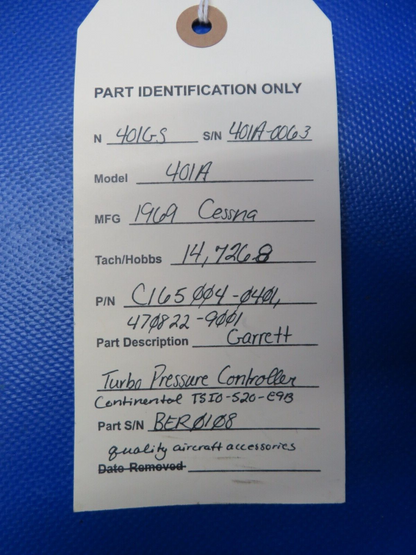 PART IDENTIFICATION ONLY
N 401GS S/N 401A-0063
Model 401A
MFG 1969 Cessna
Tach/Hobbs 14,726.8
P/N C165004-0401,
470822-9001
Part Description Garrett
Turbo Pressure Controller
Continental TSIO-520-E9B
Part S/N BER0108
quality aircraft accessories
Date Removed